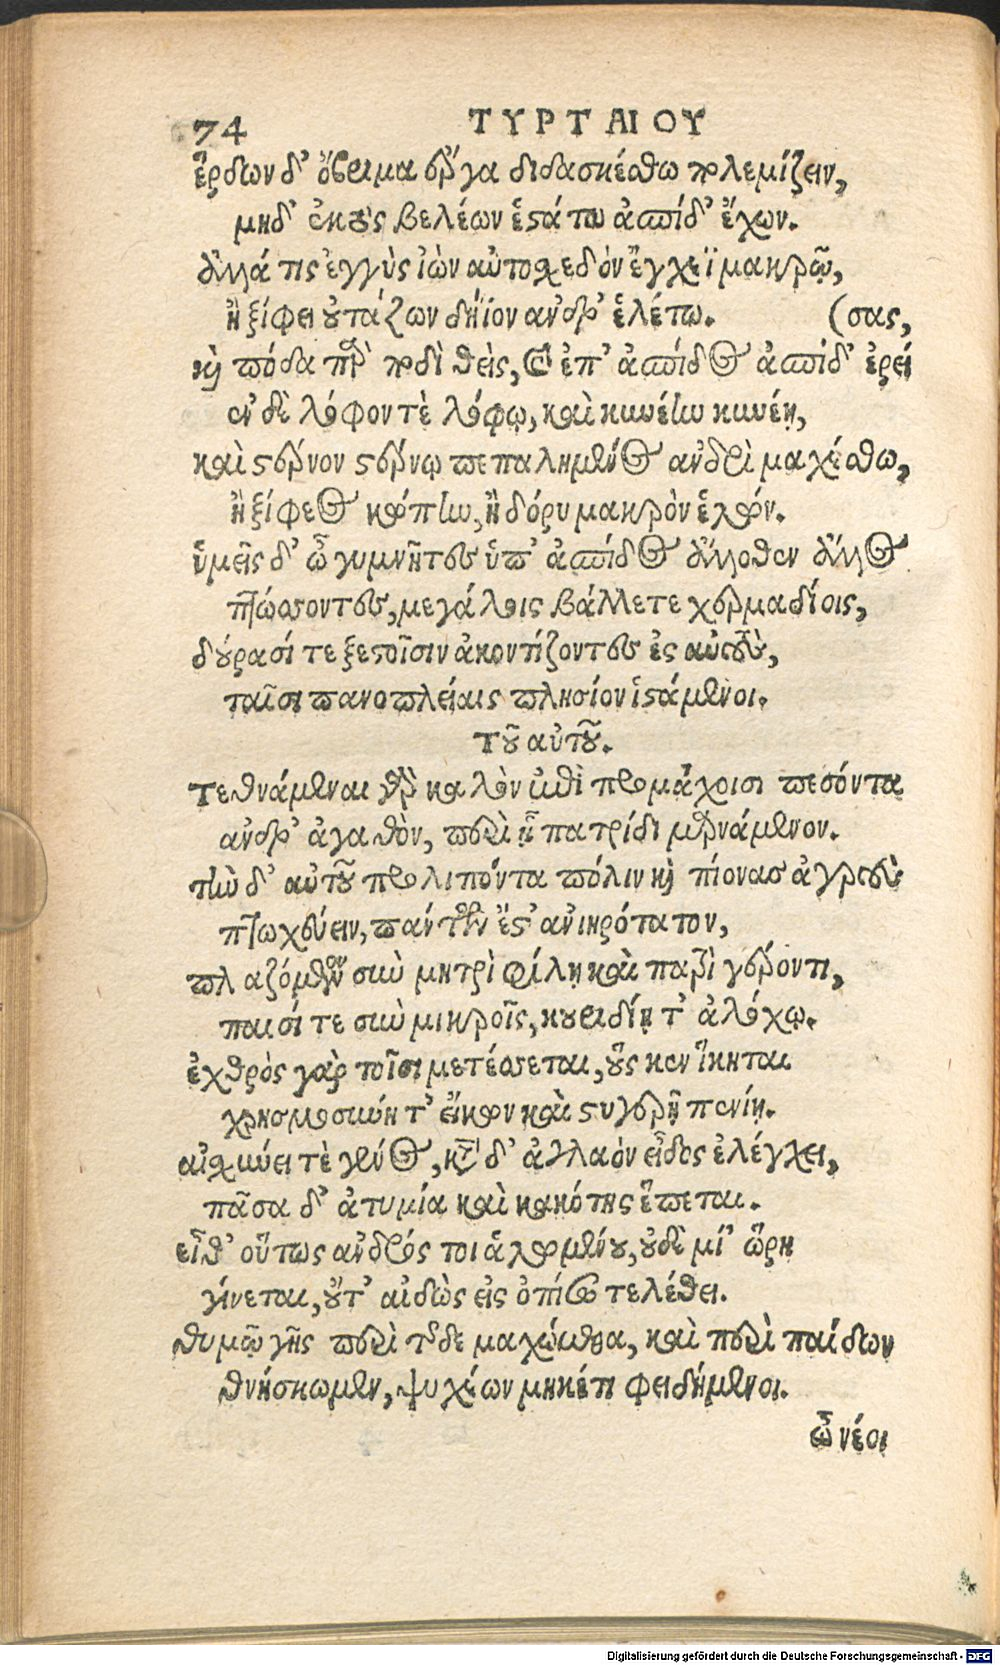 74 ΤΥΡΤΑΙΟΥ
ἔρδων δ' ὄβριμα ἔργα διδασκέσθω πολεμίζειν,
μηδ' ἐκτὸς βελέων ἑστάτω ἀσπίδ' ἔχων.
ἀλλά τις ἐγγὺς ἰὼν αὐτοσχεδὸν ἔγχεϊ μακρῷ,
ἢ ξίφει οὐτάζων δήϊον ἄνδρ' ἑλέτω. (σας,
καὶ πόδα πὰρ ποδὶ θεὶς, καὶ ἐπ' ἀσπίδος ἀσπίδ' ἐρεί
ἐν δὲ λόφον τὲ λόφῳ, καὶ κυνέην κυνέῃ,
καὶ στέρνον στέρνῳ πεπαλημένος ἀνδρὶ μαχέσθω,
ἢ ξίφεος κώπην, ἢ δόρυ μακρὸν ἑλών.
ὑμεῖς δ' ὦ γυμνῆτες ὑπ' ἀσπίδος ἄλλοθεν ἄλλος
πτώσσοντες, μεγάλοις βάλλετε χερμαδίοις,
δούρασί τε ξεστοῖσιν ἀκοντίζοντες ἐς αὐτοὺς,
ταῖσι πανοπλείαις πλησίον ἱστάμενοι.
Τοῦ αὐτοῦ.
Τεθνάμεναι γὰρ καλὸν ἐπὶ προμάχοισι πεσόντα
ἄνδρ' ἀγαθὸν, περὶ ᾗ πατρίδι μαρνάμενον.
τὴν δ' αὐτοῦ προλιπόντα πόλιν καὶ πίονας ἀγροὺς
πτωχεύειν, πάντων ἔστ' ἀνιηρότατον,
πλαζόμενον σὺν μητρὶ φίλῃ καὶ πατρὶ γέροντι,
παισί τε σὺν μικροῖς, κουριδίῃ τ' ἀλόχῳ.
ἐχθρὸς γὰρ τοῖσι μετέσσεται, οὕς κεν ἵκηται
χρησμοσύνῃ τ' εἴκων καὶ στυγερῇ πενίῃ.
αἰσχύνει τὲ γένος, κατὰ δ' ἀγλαὸν εἶδος ἐλέγχει,
πᾶσα δ' ἀτυμία καὶ κακότης ἕπεται.
εἶθ' οὕτως ἀνδρός τοι ἀλωμένου, οὐδεμί' ὥρη
γίνεται, οὔτ' αἰδὼς εἰς ὀπίσω τελέθει.
θυμῷ γῆς περὶ τῆσδε μαχώμεθα, καὶ περὶ παίδων
θνήσκωμεν, ψυχέων μηκέτι φειδήμενοι.
ὦ νέοι
Digitalisierung gefördert durch die Deutsche Forschungsgemeinschaft - DFG